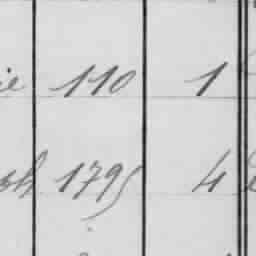 ie 110 1
sh 1795 4